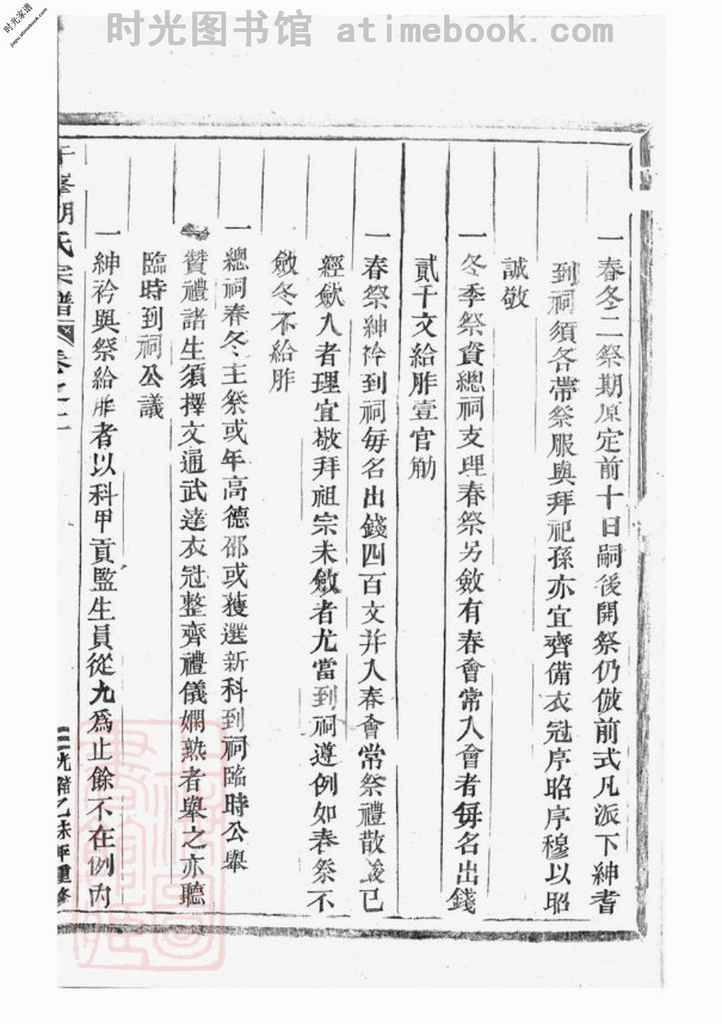 时光图书馆 atimebook.com
时光家谱
一春冬二祭期原定前十日嗣後開祭仍倣前式凡派下紳耆
到祠須各帶祭服與拜祀孫亦宜齊備衣冠序昭序穆以昭
誠敬
一冬季祭資總祠支理春祭另斂有春會常入會者每名出錢
貳千文給胙壹官觔
一春祭紳衿到祠每名出錢四百文并入春會常祭禮散後已
經斂入者理宜敬拜祖宗未斂者尤當到祠遵例如春祭不
斂冬不給胙
一總祠春冬主祭或年高德邵或獲選新科到祠臨時公舉
贊禮諸生須擇文通武達衣冠整齊禮儀嫻熟者舉之亦聽
臨時到祠公議
一紳衿與祭給胙者以科甲貢監生員從九爲止餘不在例內
胡氏宗譜 卷之二
光緒乙未年重修